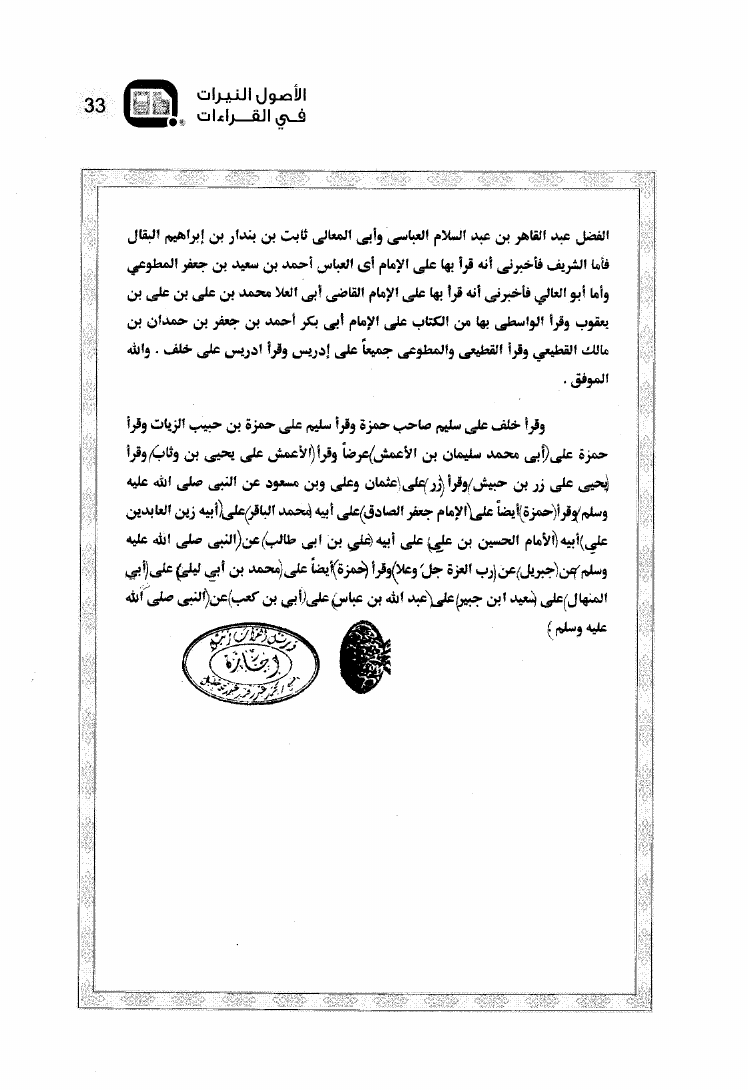 الأصول النيرات
في القراءات
33
الفضل عبد القاهر بن عبد السلام العباسى وأبى المعالى ثابت بن بندار بن إبراهيم البقال
فأما الشريف فأخبرنى أنه قرأ بها على الإمام أى العباس أحمد بن سعيد بن جعفر المطوعي
وأما أبو العالي فأخبرنى أنه قرأ بها على الإمام القاضى أبى العلا محمد بن على بن على بن
يعقوب وقرأ الواسطى بها من الكتاب على الإمام أبى بكر أحمد بن جعفر بن حمدان بن
مالك القطيعي وقرأ القطيعى والمطوعى جميعاً على إدريس وقرأ ادريس على خلف . والله
الموفق .
وقرأ خلف على سليم صاحب حمزة وقرأ سليم على حمزة بن حبيب الزيات وقرأ
حمزة على (أبى محمد سليمان بن الأعمش) عرضاً وقرأ (الأعمش على يحيى بن وثاب) وقرأ
(يحيى على زر بن حبيش) وقرأ (زر) على (عثمان وعلى وبن مسعود عن النبى صلى الله عليه
وسلم) وقرأ (حمزة) أيضاً على (الإمام جعفر الصادق) على أبيه (محمد الباقر) على (أبيه زين العابدين
علي) أبيه (الأمام الحسين بن علي) على أبيه (علي بن ابى طالب) عن (النبى صلى الله عليه
وسلم) عن (جبريل) عن (رب العزة جل وعلا) وقرأ (حمزة) أيضاً على (محمد بن أبي ليلى) على (أبي
المنهال) على (سعيد ابن جبير) على (عبد الله بن عباس) على (أبي بن كعب) عن (النبى صلى الله
عليه وسلم )
إجازة